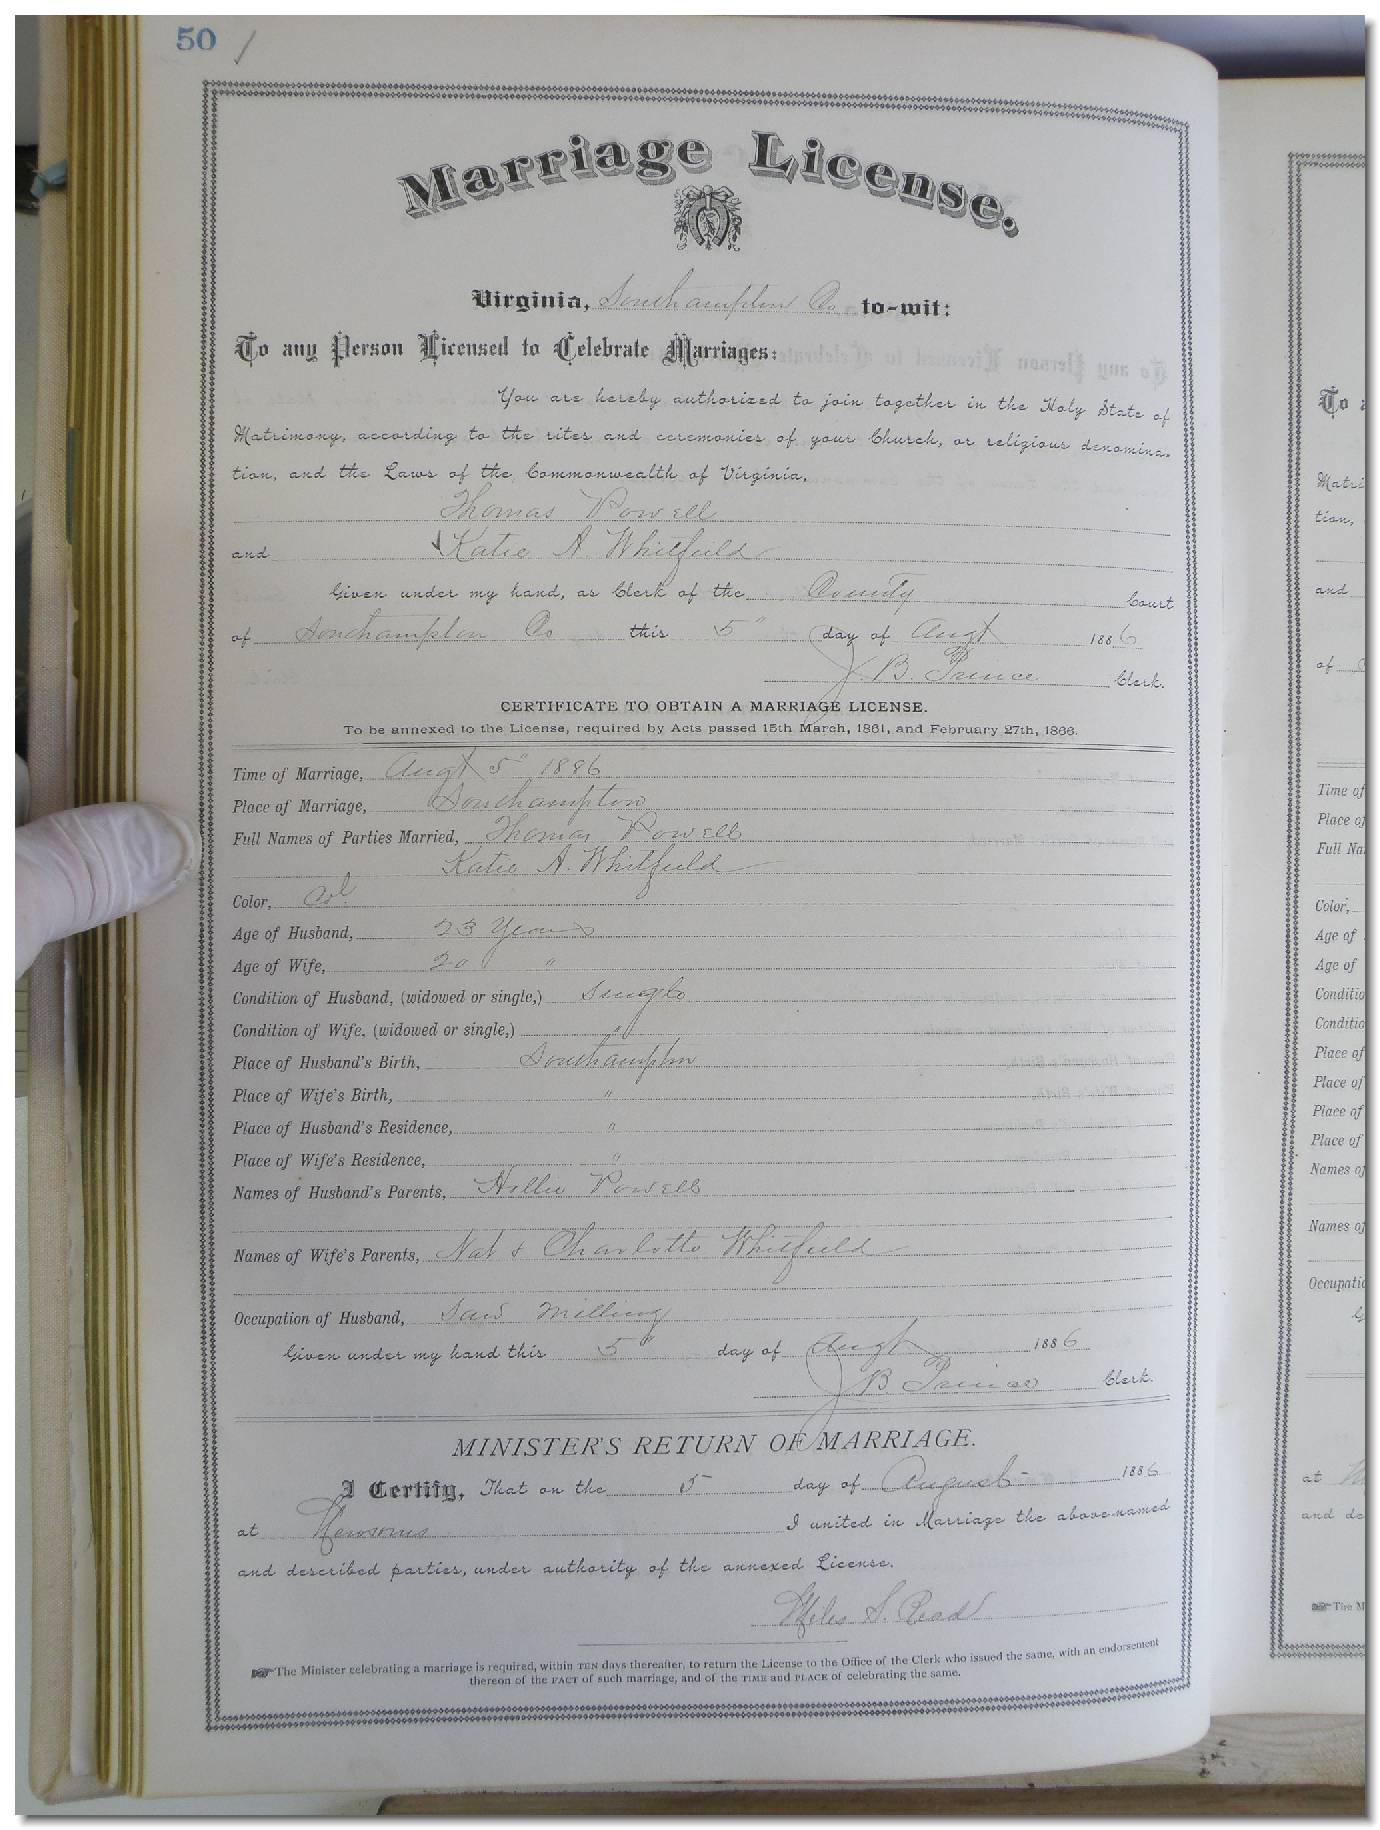 50 /
Marriage License.
Virginia, Southampton Co to-wit:
To any Person Licensed to Celebrate Marriages:
You are hereby authorized to join together in the Holy State of
Matrimony, according to the rites and ceremonies of your Church, or religious denomina-
tion, and the Laws of the Commonwealth of Virginia,
Thomas Powell
and Katie A Whitfield
Given under my hand, as Clerk of the County Court
of Southampton Co this 5" day of Augt 1886
J B. Prince Clerk.
CERTIFICATE TO OBTAIN A MARRIAGE LICENSE.
To be annexed to the License, required by Acts passed 15th March, 1861, and February 27th, 1866.
Time of Marriage, Augt 5" 1886
Place of Marriage, Southampton
Full Names of Parties Married, Thomas Powell
Katie A. Whitfield
Color, Col
Age of Husband, 23 Years
Age of Wife, 20 "
Condition of Husband, (widowed or single,) Single
Condition of Wife, (widowed or single,) "
Place of Husband's Birth, Southampton
Place of Wife's Birth, "
Place of Husband's Residence, "
Place of Wife's Residence, "
Names of Husband's Parents, Hillie Powell
Names of Wife's Parents, Nat & Charlotte Whitfield
Occupation of Husband, Saw Milling
Given under my hand this 5" day of Augt 1886
J B Prince Clerk.
MINISTER'S RETURN OF MARRIAGE.
I Certify, That on the 5 day of August 1886
at Newsoms I united in Marriage the above-named
and described parties, under authority of the annexed License.
Miles S. Read
The Minister celebrating a marriage is required, within TEN days thereafter, to return the License to the Office of the Clerk who issued the same, with an endorsement
thereon of the FACT of such marriage, and of the TIME and PLACE of celebrating the same.
To
Matri
tion,
and
of
Time of
Place of
Full Na
Color,
Age of
Age of
Conditio
Conditio
Place of
Place of
Place of
Place of
Names of
Names of
Occupatio
at
and de
The M